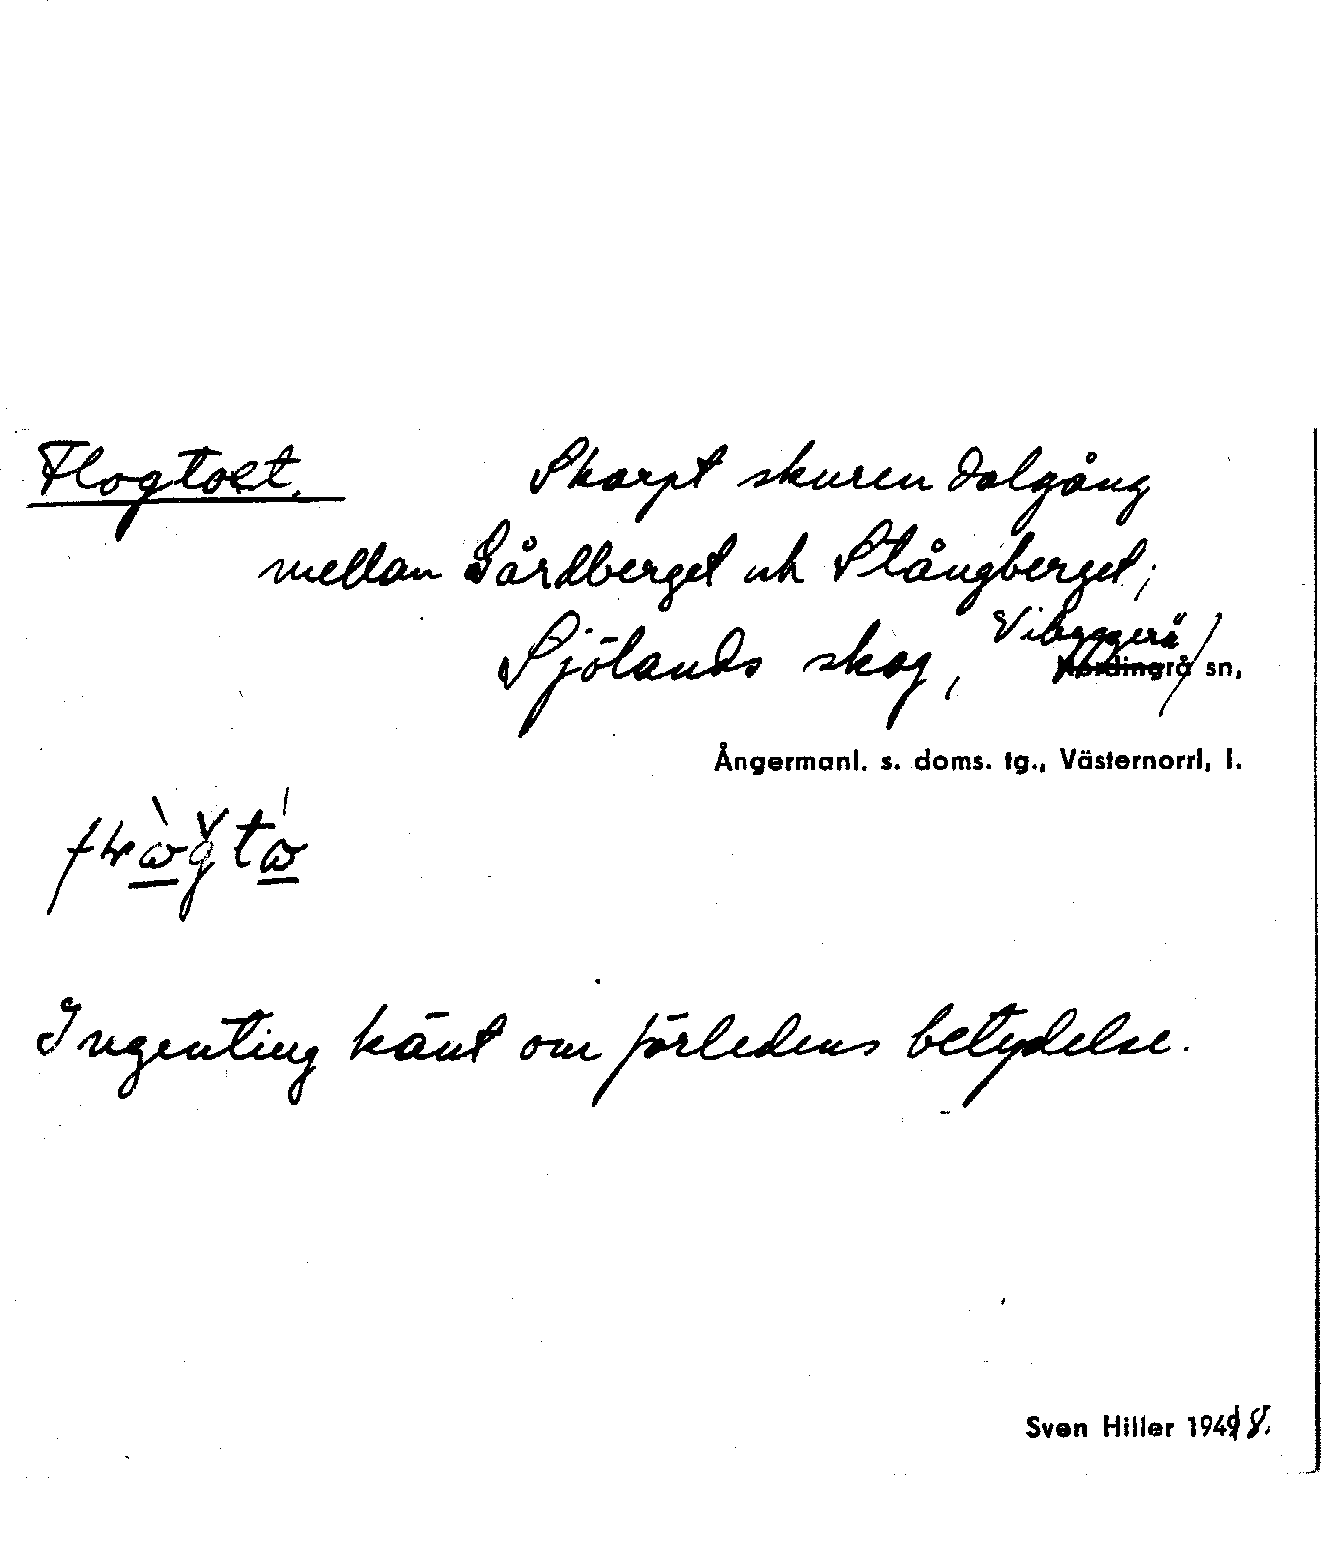 Flogtoet. Skarpt skuren dalgång
mellan Gårdberget och Stångberget;
Sjölands skog, Vibyggerå
Nordingrå sn,
Ångermanl. s. doms. tg., Västernorrl, l.
Ingenting känt om förledens betydelse.
Sven Hiller 1948.